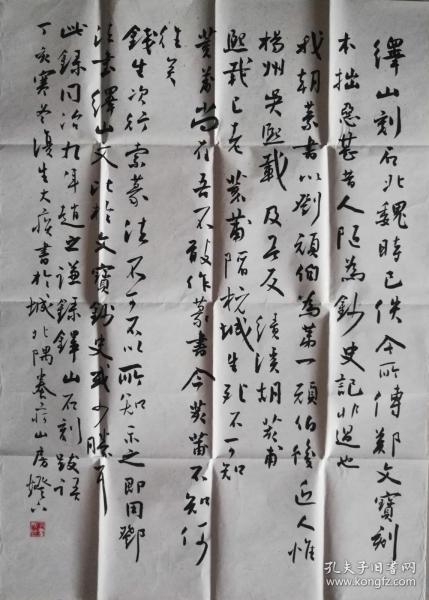 繹山刻石北魏時已佚今所傳鄭文寶刻
本拙惡甚昔人陋為鈔史記非過也
我朝篆書以鄧頑伯為第一頑伯後近人惟
楊州吳熙載及吾友績溪胡荄甫
熙載已老荄甫陷杭城生死不可知
荄甫尚在吾不敢作篆書今荄甫不知何
往矣
錢生次行索篆法不可不以所知示之即用鄧
法書繹山文比於文寶鈔史或少勝耳
此錄同治九年趙之謙錄繹山石刻跋語
丁亥寒冬漢生大癡書於城北隅養莊山房燈下
孔夫子旧书网
www.kongfz.com